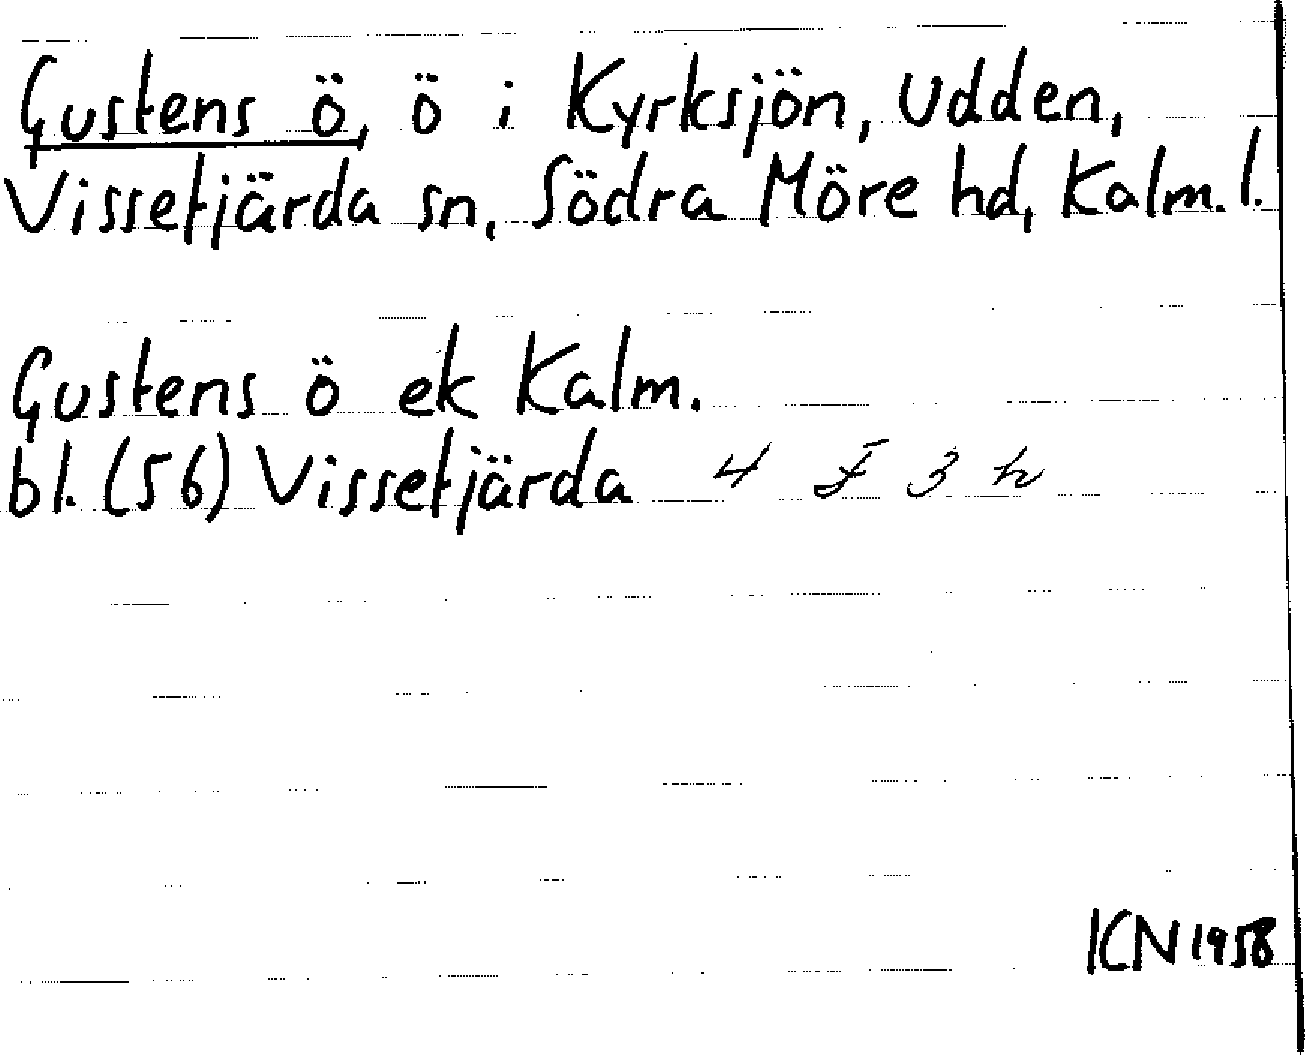 Gustens ö, ö i Kyrksjön, Udden,
Vissefjärda sn, Södra Möre hd, Kalm. l.
Gustens ö ek Kalm.
bl. (56) Vissefjärda 4 F 3 h
KN 1958